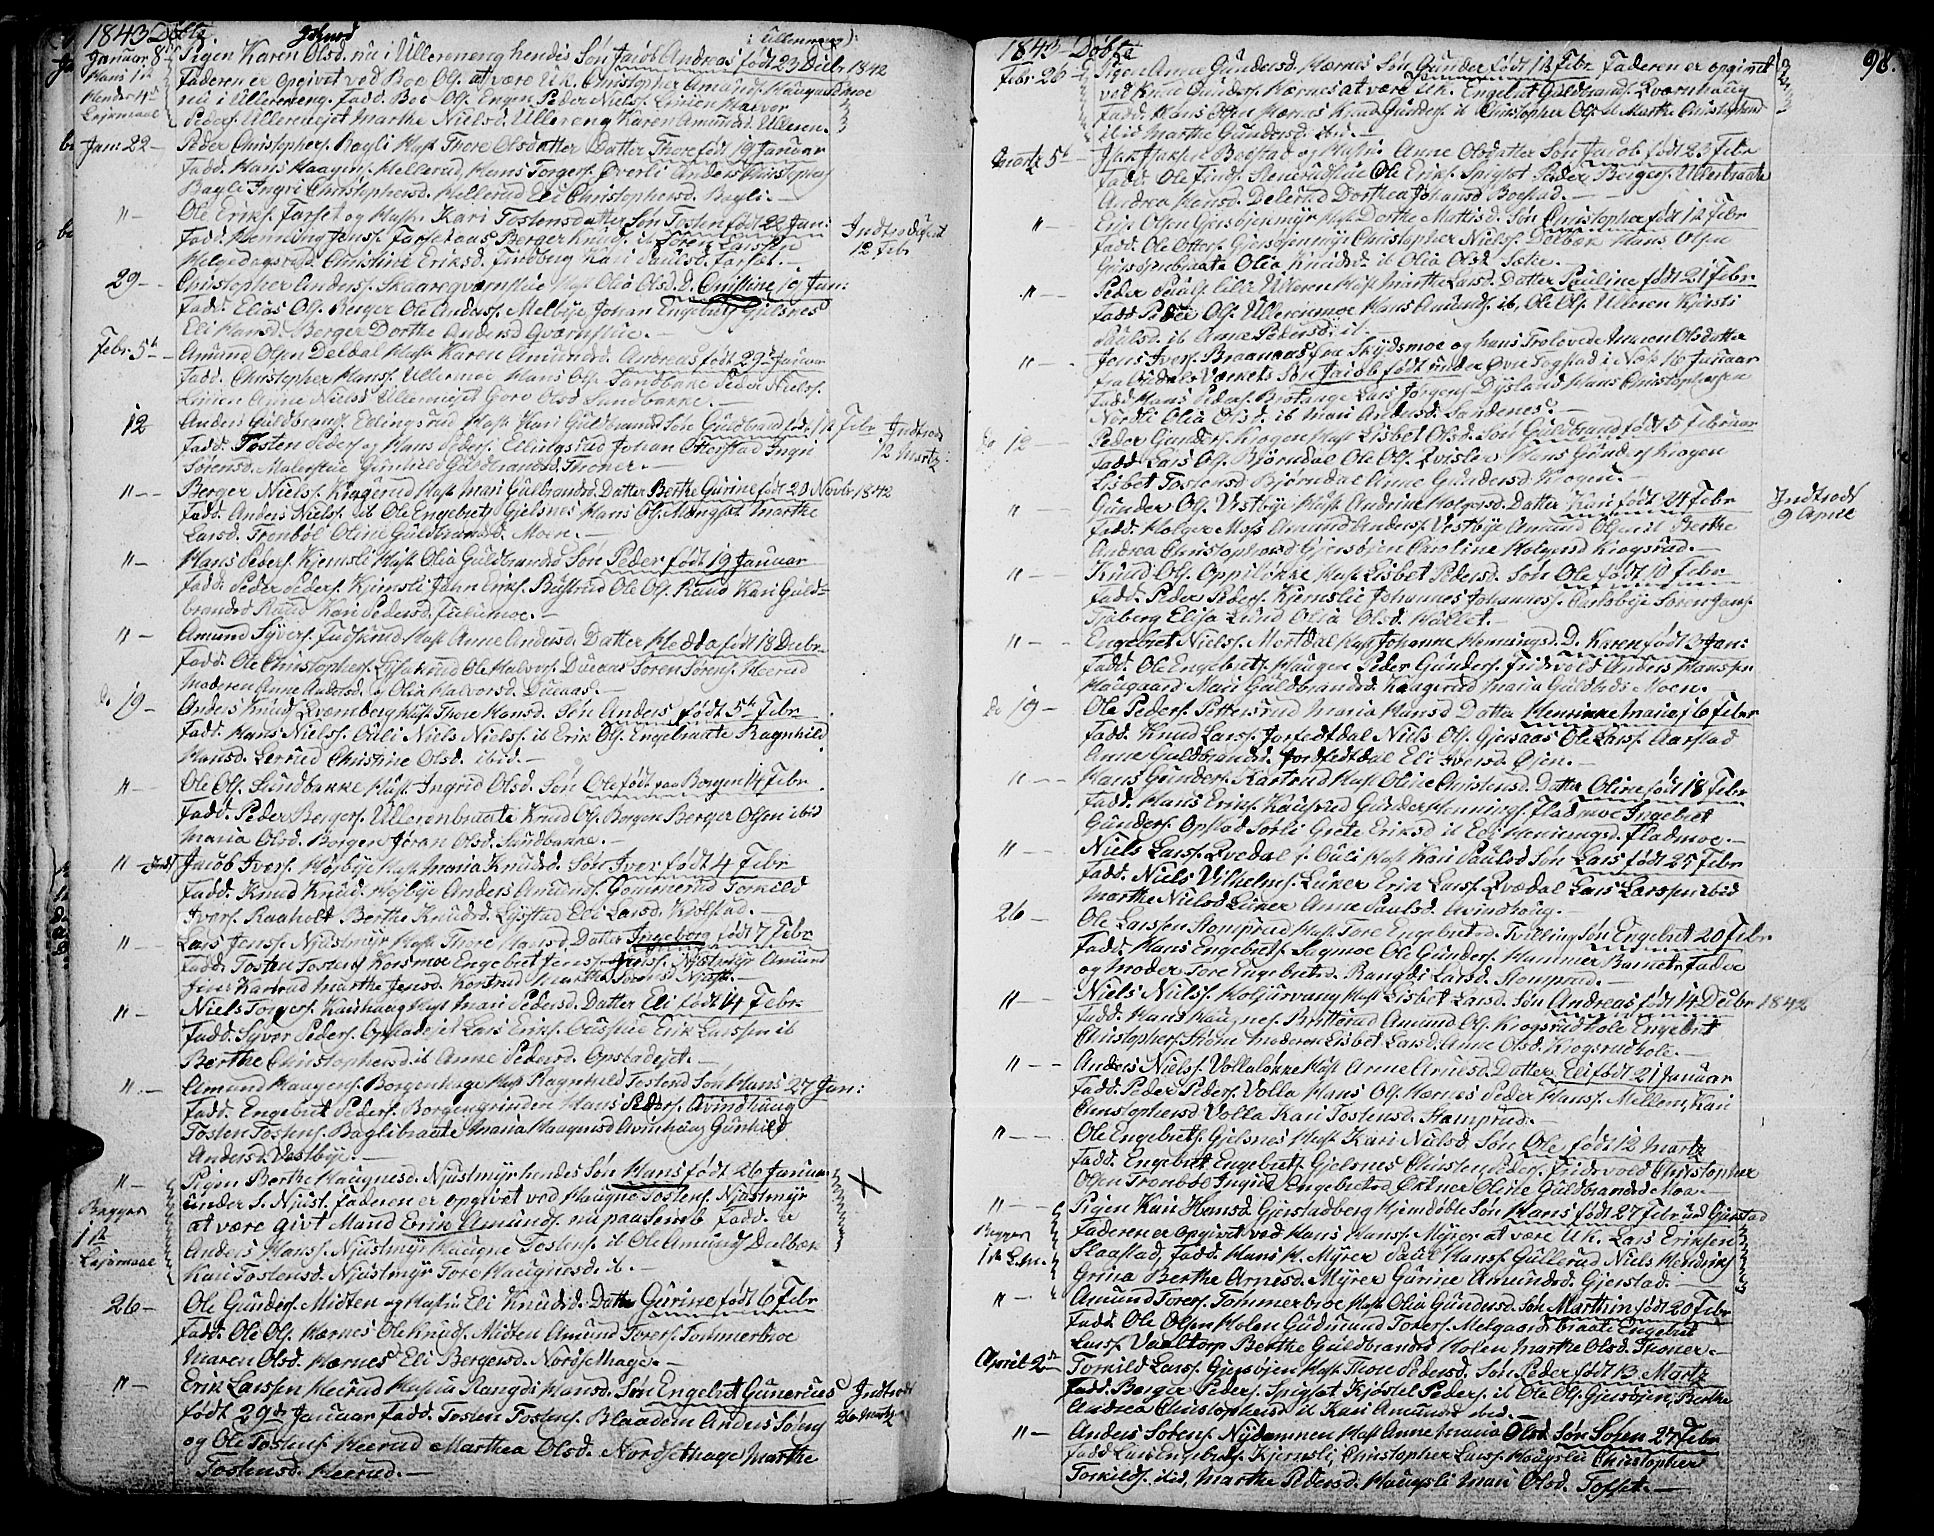 1843 Døbte
Januar 8 Pigen Karen Olsd. nu i Ullereneng hendes Søn Jacob Andreas født 23 Decbr 1842
Faderen er opgivet ved Boe Ols. at være Uk. Christopher Amunds. Haugerudmoe
nu i Ullereneng. Fadd. Boe Ols. Engen Peder Niels. Linien Halvor
Peders. Ullereneiet Marthe Nielsd. Ullereng Karen Amundsd. Ulleren.
Jan: 22 - Peder Christophers. Bagli Hust. Thore Olsdatter Datter Thore født 19 Januar
Fadd. Hans Haagens. Mellerud, Hans Torgers. Overli Anders Christophers
Bagli Ingri Christophersd. Mellerud Eli Christophersd. Bagli. -
" - Ole Eriks. Farset og Hust. Kari Tostensdatter Søn Tosten født 22 Jan:
Fadd. Henning Jens. Farsetaas Berger Knuds. ib Søren Larssen
Helgedagsrud Christine Eriksd. Lindberg Kari Paulsd. Farset. -
Indtroduceret
12 Febr
29 - Christopher Anders. Skaaregværnslue Hust. Olia Olsd. D. Christine 10 Jan:
Fadd. Elias Ols. Berger Ole Anders. Melbye Johan Engebrets. Gjelsnes
Eli Hansd. Berger Dorthe Andersd. Qværnslue. -
Febr. 5te Amund Olsen Delbæk Hust. Karen Amundsd. Andreas født 29de Januar
Fadd. Christopher Hans. Ullermoe Hans Ols. Sandbakke Peder Niels.
Linien Anne Nielsd Ullereneiet Goro Olsd Sandbakke. -
12 Anders Guldbrands. Edlingsrud Hust. Kari Guldbrandsd Søn Guldbrand født 12 Febr Indtrod
Fadd. Tosten Peders. og Hans Peders. Ellingsrud Johan Otterstad Ingri 12 Martz
Sørensd. Malerslue Gunhild Guldbrandsd. Thoner. -
" - - Berger Niels. Kragerud Hust. Mari Gulbrandsd. Datter Berthe Gurine født 20 Novbr 1842
Fadd. Anders Niels. ib Ole Engebret Gjelsnes Hans Ols. Mangset Marthe
Larsd. Tronbøl Oline Guldbrandsd. Moen. -
" - Hans Peders. Kjemsli Hust. Olia Guldbrandsd Søn Peder født 19 Januar
Fadd. Peder Peders. Kjemsli John Eriks. Bustrud Ole Ols. Ruud Kari Guld-
brandsd Ruud Kari Pedersd. Juliemoe. -
" - Amund Syvers. Fudskrud Hust. Anne Andersd. Datter Hedda født 18 Decbr
Fadd. Ole Christophers. Ole Halvors. Duaas Søren Sørens. Heerud
Moderen Anne Andersd. og Olia Halvorsd. Duaas. -
19 - Anders Knuds. Qvæmberg Hust. Thore Hansd. Søn Anders født 5te Febr
Fadd. Hans Niels. Ouli Niels Niels. ib Erik Ols. Engebraate Ragnhild
Hansd. Lerrud Christine Olsd. ibid. -
" - Ole Ols. Sundbakke Hust. Ingrid Olsd. Søn Ole født paa Borgen 14 Febr
Fadd. Peder Bergers. Ullerenbraate Knud Ols. Borgen Berger Olsen ibid
Maria Olsd. Borgen Jøran Olsd. Sandbakke. -
" - Jacob Ivers. Høybye Hust. Maria Knudsd. Søn Iver født 4 Febr
Fadd. Knud Knuds. Høybye Anders Amunds. Gommerud Torkild
Ivers. Raaholt Berthe Knudsd. Lystad Eli Larsd. Kolstad. -
" - Lars Jens. Njustmyr Hust. Thore Hansd. Datter Ingeborg født 7 Febr
Fadd. Tosten Tostens Korsmoe Engebret Jens. Njustmyr Amund
Kartrud Marthe Jensd. Kortrud Marthe Sørensd. Njust. -
" - Niels Torgers. Kaushaug Hust. Mari Pedersd. Datter Eli født 14 Febr
Fadd. Syver Peders. Opstadeiet Lars Eriks. Erik Larssen ib
Berthe Christophersd. ib Anne Pedersd. Opstadeiet. -
" - Amund Haagens. Borgenhage Hust. Ragnhild Tostensd Søn Hans 27 Jan:
Fadd. Engebret Peders. Borgengrinden Hans Peders. Avindhaug
Tosten Tostens. Baglibraate Maria Haagensd Avindhaug Gunhild
Andersd. Vestbye. -
" - Pigen Berthe Haugnesd. Njustmyr hendes Søn Hans født 26 Januar
under S. Njust. Faderen er opgivet ved Haugne Tostens. Njustmyr
at være givt Mand Erik Amunds. nu paa Fadd. er
Anders Hans. Njustmyr Haugne Tostens. ib Ole Amunds Delbæk
Kari Tostensd. Njustmyr Tore Haugnesd. ib. -
Begges
1ste
Lejermaal
26 - Ole Gunders. Midten og Hustru Eli Knudsd. Datter Gurine født 6 Febr
Fadd. Ole Ols. Hærnes Ole Knuds. Midten Amund Tores. Tommerbroe
Maren Olsd. Hærnes Eli Bergersd. Nordsethage. -
" - Erik Larssen Heerud Hustru Rangdi Hansd. Søn Engebret Gunerius Indtrodt
født 29de Januar Fadd. Tosten Tostens. Blaadam Anders Sørens 26 Martz
og Ole Tostens. Heerud Marthea Olsd. Nordsethage Marthe
Tostensd. Heerud. -
1843 Døbte 98.
Febr 26 - Pigen Anne Gundersd. Hærnes Søn Gunder født 12 Febr. Faderen er opgivet
ved Knud Gunders. Hærnes at være Uk. Engebret Guldbrands. Qværnhaug
Fadd. Hans Hærnes Knud Gunders. ib Christopher Ols. ib Marthe Christophersd
ib Marthe Gundersd. ib. -
Martz 5te - Bogstad og Hustru Anne Olsdatter Søn Jacob født 23 Febr
Fadd. Ole Finds. Stenerudslue Ole Eriks. Spigset Peder Bergers. Ullerbraate
Andrea Hansd. Delerud Dorthea Johansd Bogstad. -
" - Erik Olsen Gjersøjenmyr Hust Dorthe Mattisd. Søn Christopher født 12 Febr
Fadd. Ole Otters. Gjersøjenmyr Christopher Niels. Delbæk Hans Olsen
Gjersøjenbraate Olia Knudsd. ib Olia Olsd.
" - Peder Ulleren Hust Marthe Larsd. Datter Pauline født 21 Febr
Fadd Peder Ols. Ullerenmoe Hans Amunds. ib, Ole Ols. Ulleren Kjersti
Paulsd. ib Anne Pedersd. ib -
" - Jens Ivers. Braanaas fra Skydsmoe og hans Trolovede Maren Olsdatter
fra Odals Værkets Søn Jacob født under Øvre Togstad i Næs 16 Januar
Fadd Hans Peders. Brotange Lars Jørgens. Dysland Hans Christophersen
Nordli Olia Olsd. ib Mari Andersd. Sandenes. -
12 - Peder Gunders. Krogen Hust Lisbet Olsd. Søn Guldbrand født 5 Februar
Fadd Lars Ols. Bjørndal Ole Ols. Qvisler Hans Gunders Krogen
Lisbet Tostensd Bjørndal Anne Gundersd Krogen. -
" - Gunder Ols. Vestbye Hust Andrine Holgersd. Datter Kari født 24 Febr Indtrodt
Fadd. Holger Moss Amund Anders. Vestbye Amund Olsen ib Berthe 9 April
Andrea Christophersd Gjersøjen Caroline Holgersd Krogsrud. -
" - Knud Ols. Oppiløkke Hust Lisbet Pedersd. Søn Ole født 10 Febr
Fadd. Peder Peders. Kjemslie Johannes Johannes. Aarlsbye Søren Jans.
Tjøberg Elisa Lund Olia Olsd. Hallet. -
" - Engebret Niels. Mortdal Hust Johanne Henningsd. D. Karen født 3 Jan:
Fadd. Ole Engebrets. Haugen Peder Gunders. Fridsvold Anders Hanssen
Haugaard Mari Guldbrandsd. Kragerud Maria Guldbrsd. Moen. -
19 - Ole Peders. Pettersrud Maria Hansd Datter Henrikke Maria f 6 Febr
Fadd. Knud Lars. Jorfedtdal Niels Ols. Gjersaas Ole Lars. Aarstad
Anne Guldbrandsd. Jordfedtdal Eli Iversd. Gjen. -
" - - Hans Gunders. Kartrud Hust Oline Christensd. Datter Oline født 18 Febr
Fadd. Hans Eriks. Kausrud Gunder Hennings. Fladmoe Ingebret
Gunders. Opstad Sørli Grete Eriksd. ib Eli Henningsd. Fladmoe. -
" - - Niels Lars. Qvedal i Ouli Hust Kari Paulsd Søn Lars født 25 Febr
Fadd. Niels Vilhelms. Luker Erik Lars. Qvædal Lars Larssen ibid
Marthe Nielsd Luker Anne Paulsd. Avindhaug. -
26 - Ole Larssen Stomprud Hust Tore Engebretsd. Tvilling Søn Engebret 20 Febr
Fadd. Hans Engebrets. Sagmoe Ole Gunders. Hammer Barnets Fader
og Moder Tore Engebretsd. Rangdi Larsd. Stomprud. -
" - - Niels Niels. Holjarvang Hust Lisbet Larsd. Søn Andreas født 14 Decbr 1842
Fadd. Hans Haugnes. Bratterud Amund Ols. Krogsrudhole Engebret
Christophers. Stene Moderen Lisbet Larsd. Anne Olsd. Krogsrudhole. -
" - - Anders Niels. Volløkke Hust Anne Arnesd. Datter Eli født 21 Januar
Fadd. Peder Peders. Volla Hans Ols. Hærnes Peder Hans. Mellem, Kari
Christophersd Volla Kari Tostensd. Stomprud. -
" - - Ole Engebrets. Gjelsnes Hust Kari Nielsd Søn Ole født 12 Martz
Fadd. Engebret Engebrets. Gjelsnes Christen Peders. Fridsvold Christopher
Olsen Trombøl Ingid Engebretsd Ørkner Oline Guldbrandsd Moe. -
" - - Pigen Kari Hansd. Gjerstadberg Hjemdøbte Søn Hans født 27 Febr ved Gjerstad
Faderen er opgivet ved Hans Hans. Myrer at være Uk. Lars Eriksen
Slaastad, Fadd. Hans H. Myrer Paul Hans. Gullerud Niels Hendriks
Grina Berthe Arnesd. Myrer Gurine Amundsd. Gjerstad. -
Begges
1ste Lm.
" - Amund Tores. Tommerbroe Hust Olia Gundersd. Søn Marthin født 20 Febr
Fadd. Ole Olsen Holen Gudmund Tores. Melgaardsbraate Engebret
Lars. Vaaltorp Berthe Guldbrandsd Holen Marthe Olsd. Thoner. -
April 2den Torkild Lars. Gjersøjen Hust Thore Pedersd. Søn Peder født 13 Martz
Fadd. Berger Peders. Spigset Kjøstel Peders. ib Ole Ols. Gjersøjen, Berthe
Andrea Christophersd ib Kari Amundsd ibid. -
" - Anders Sørens. Nydammen Hust Anne Maria Olsd. Søn Søren 27 Febr
Fadd Lars Engebrets. Kjernsli, Christopher Lars. Haugsli Christopher
Torkilds. ibid, Marthe Pedersd. Haugsli Mari Olsd. Tofset. -